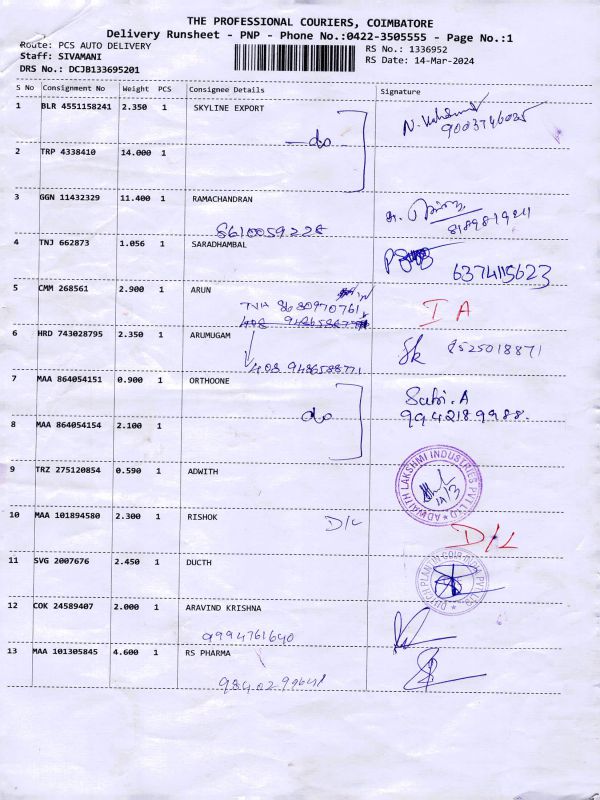 THE PROFESSIONAL COURIERS, COIMBATORE
Delivery Runsheet - PNP - Phone No.:0422-3505555 - Page No.:1
Route: PCS AUTO DELIVERY
RS No.: 1336952
Staff: SIVAMANI
RS Date: 14-Mar-2024
DRS No.: DCJB133695201
S No Consignment No Weight PCS Consignee Details Signature
1 BLR 4551158241 2.350 1 SKYLINE EXPORT
do
9003746035
2 TRP 4338410 14.000 1
3 GGN 11432329 11.400 1 RAMACHANDRAN
8610059228
4 TNJ 662873 1.056 1 SARADHAMBAL
6374115623
5 CMM 268561 2.900 1 ARUN
8680970761
I A
6 HRD 743028795 2.350 1 ARUMUGAM
8525018871
408 9486588771
7 MAA 864054151 0.900 1 ORTHOONE
Sabi.A
9942189988.
do
8 MAA 864054154 2.100 1
9 TRZ 275120854 0.590 1 ADWITH
ADWAITH LAKSHMI INDUSTRIES PVT LTD
14/3
10 MAA 101894580 2.300 1 RISHOK
D/L
D/L
11 SVG 2007676 2.450 1 DUCTH
12 COK 24589407 2.000 1 ARAVIND KRISHNA
9994761640
13 MAA 101305845 4.600 1 RS PHARMA